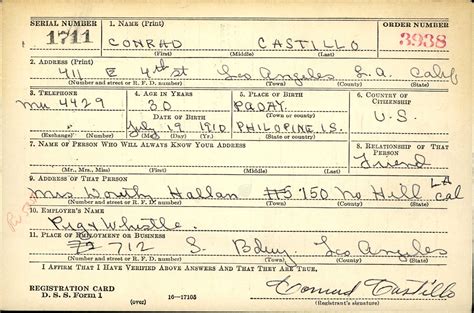 SERIAL NUMBER 1. NAME (Print) ORDER NUMBER
1711 CONRAD CASTILLO 3938
(First) (Middle) (Last)
2. ADDRESS (Print)
411 E 4th St Los Angeles L.A. Calif
(Number and street or R. F. D. number) (Town) (County) (State)
3. TELEPHONE 4. AGE IN YEARS 5. PLACE OF BIRTH 6. COUNTRY OF CITIZENSHIP
Mu 4429 30
DATE OF BIRTH (Town or county) U.S.
July 19 1910 PHILOPINE IS.
(Exchange) (Number) (Mo.) (Day) (Yr.) (State or country)
7. NAME OF PERSON WHO WILL ALWAYS KNOW YOUR ADDRESS 8. RELATIONSHIP OF THAT PERSON
Friend
(Mr., Mrs., Miss) (First) (Middle) (Last)
9. ADDRESS OF THAT PERSON
Miss 150 No Hill LA Cal
(Number and street or R. F. D. number) (Town) (County) (State)
10. EMPLOYER'S NAME
Pig & Whistle
11. PLACE OF EMPLOYMENT OR BUSINESS
712 S. Bdwy Los Angeles
(Number and street or R. F. D. number) (Town) (County) (State)
I AFFIRM THAT I HAVE VERIFIED ABOVE ANSWERS AND THAT THEY ARE TRUE.
REGISTRATION CARD
D. S. S. Form 1 (over) 16—17105 Conrad Castillo
(Registrant's signature)